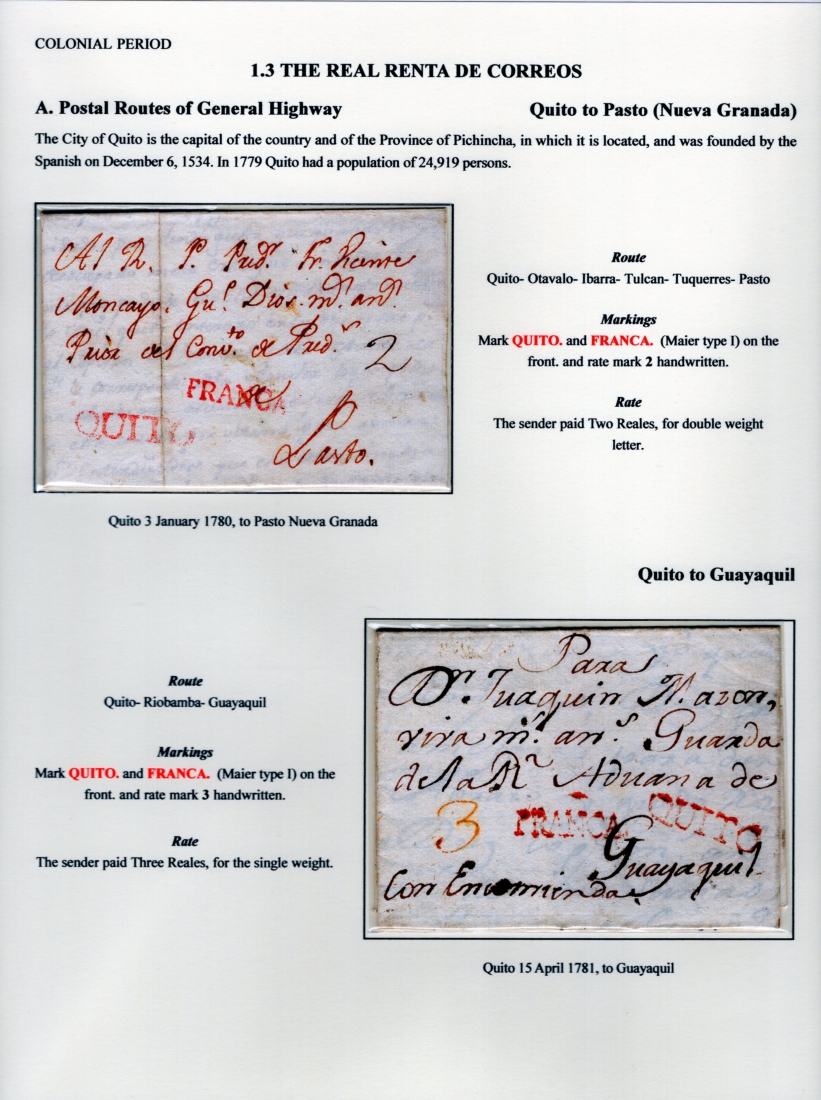 COLONIAL PERIOD
1.3 THE REAL RENTA DE CORREOS
A. Postal Routes of General Highway
Quito to Pasto (Nueva Granada)
The City of Quito is the capital of the country and of the Province of Pichincha, in which it is located, and was founded by the
Spanish on December 6, 1534. In 1779 Quito had a population of 24,919 persons.
Al R. P. Pred.r Fr. Vicente
Moncayo, Gu.e Dios m.s an.s
Prior del Conv.to de Pred.s 2
FRANCA
QUITO
Pasto.
Route
Quito- Otavalo- Ibarra- Tulcan- Tuquerres- Pasto
Markings
Mark QUITO. and FRANCA. (Maier type I) on the
front. and rate mark 2 handwritten.
Rate
The sender paid Two Reales, for double weight
letter.
Quito 3 January 1780, to Pasto Nueva Granada
Quito to Guayaquil
Route
Quito- Riobamba- Guayaquil
Markings
Mark QUITO. and FRANCA. (Maier type I) on the
front. and rate mark 3 handwritten.
Rate
The sender paid Three Reales, for the single weight.
Para
D.n Juaquin Mazon,
viva m.s an.s Guarda
de la R.l Aduana de
3 FRANCA. QUITO
Guayaquil
Con Encomienda.
Quito 15 April 1781, to Guayaquil